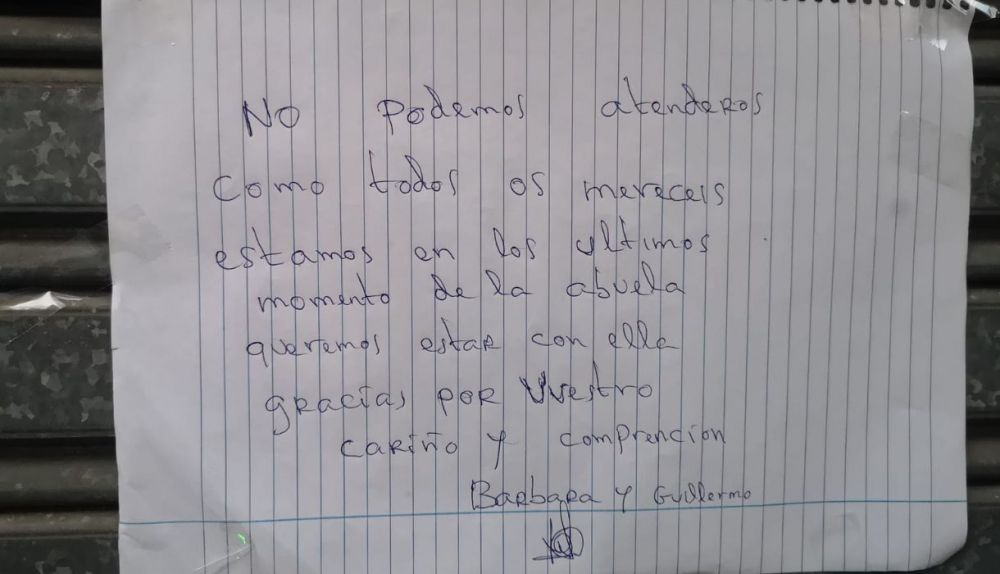 No Podemos atenderos
como todos os mereceis
estamos en los ultimos
momento de la abuela
queremos estar con ella
gracias por Vuestro
cariño y comprencion
Barbara y Guillermo